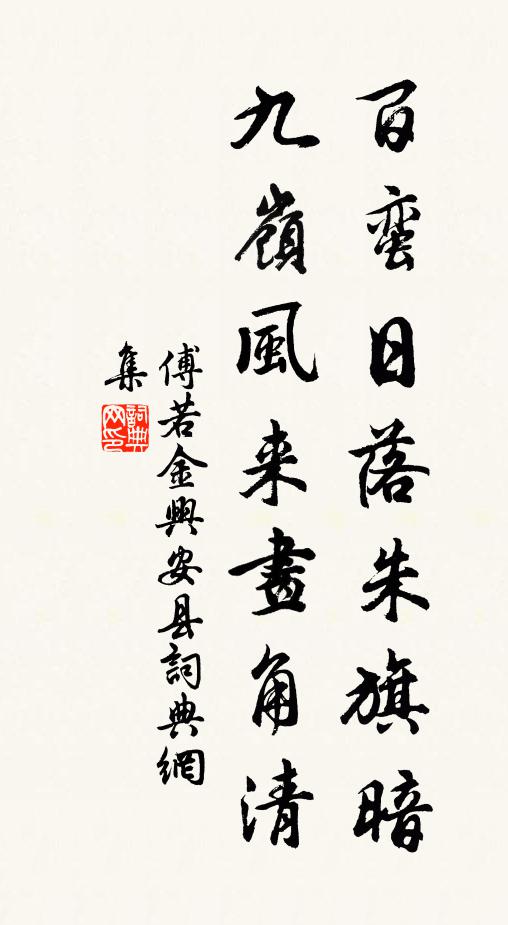 百蛮日落朱旗暗
九嶺風来畫角清
傅若金興安县詞典網
集
詞典网印